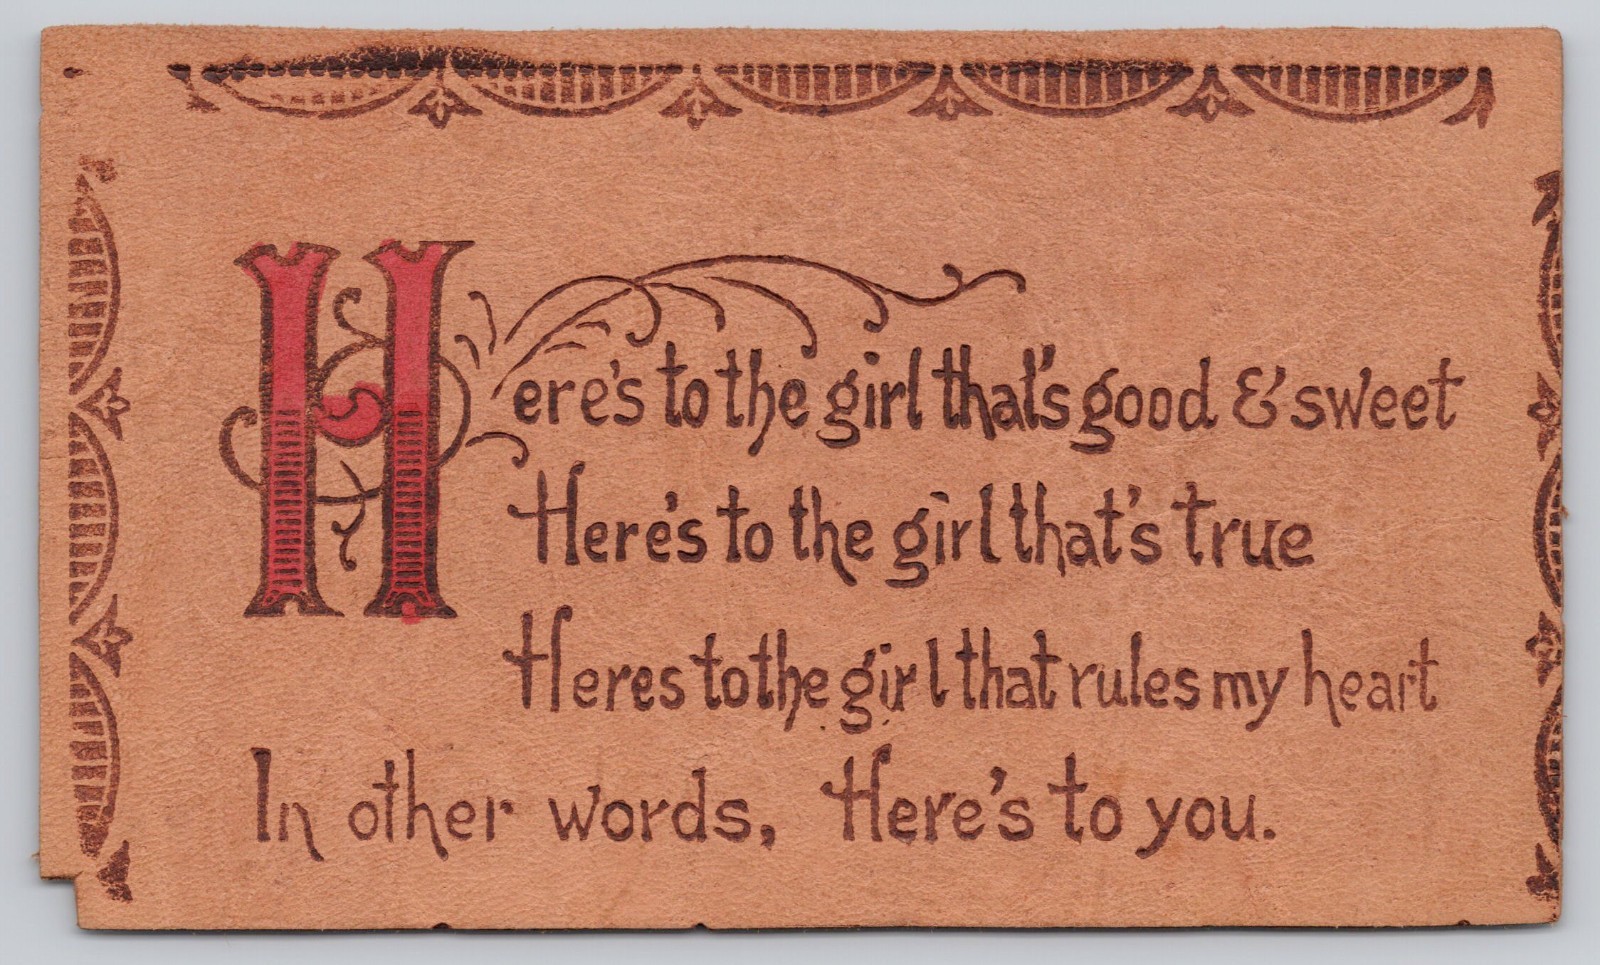 Here's to the girl that's good & sweet
Here's to the girl that's true
Heres to the girl that rules my heart
In other words, Here's to you.